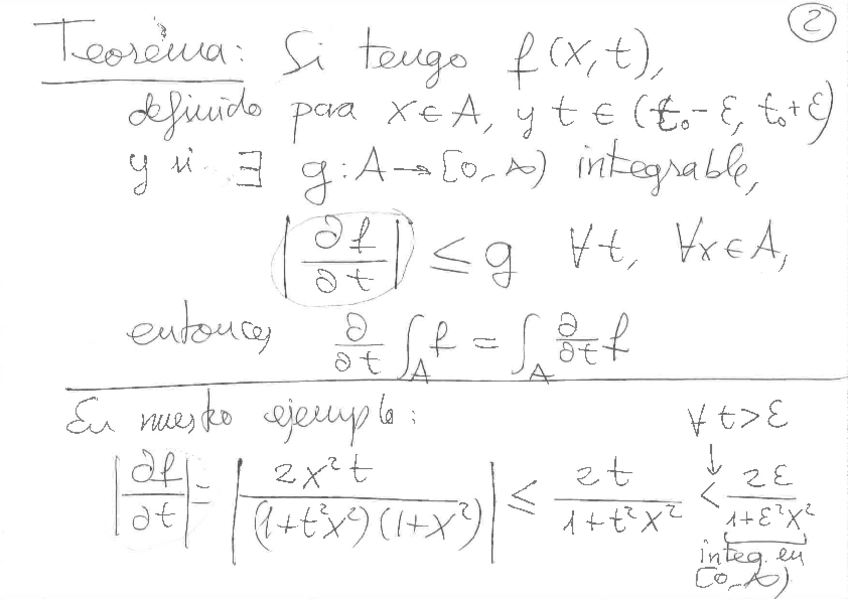 ②
Teorema: Si tengo f(x,t),
definido para x ∈ A, y t ∈ (t₀-ε, t₀+ε)
y si ∃ g: A → [0,∞) integrable,
|∂f/∂t| ≤ g ∀t, ∀x ∈ A,
entonces ∂/∂t ∫_A f = ∫_A ∂/∂t f
En nuestro ejemplo: ∀ t>ε
|∂f/∂t| = |2x²t/((1+t²x²)(1+x²))| ≤ 2t/(1+t²x²) < 2ε/(1+ε²x²)
↓
integ. en
[0,∞)